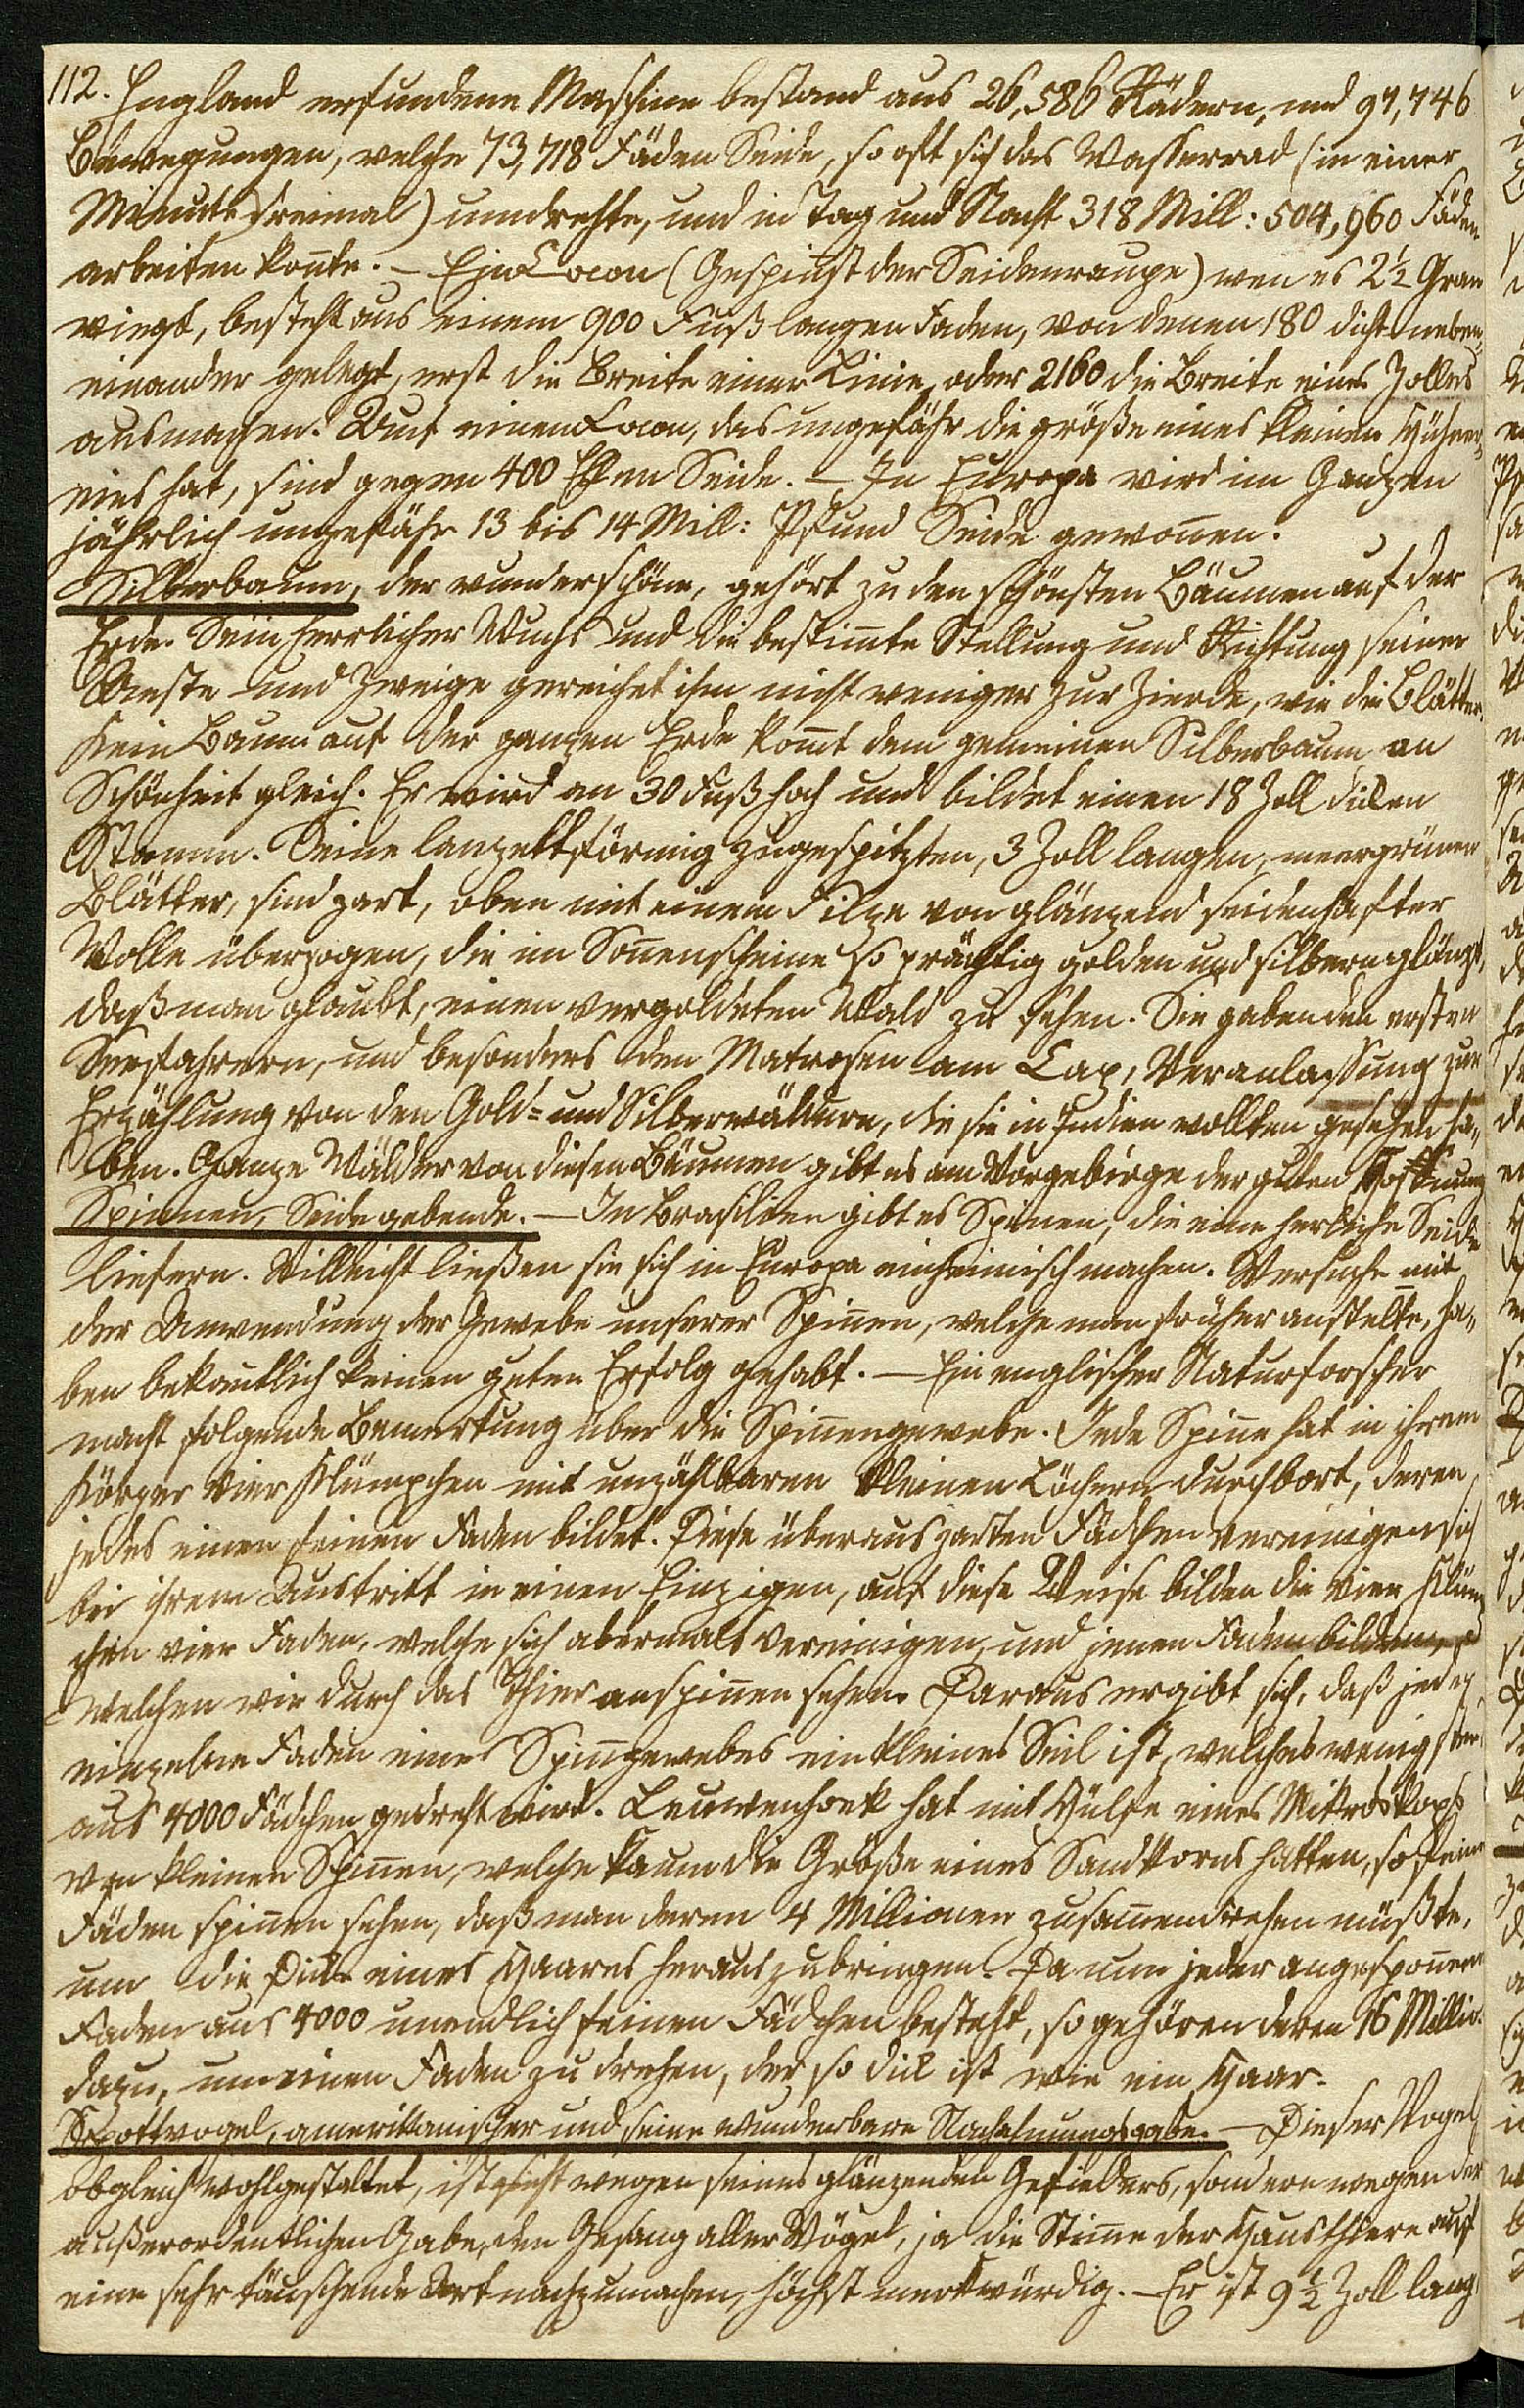 112. England erfundene Maschine bestand aus 26,586 Rädern, und 97,746
Bewegungen, welche 73,718 Fäden Seide, so oft sich das Wasserrad (in einer
Minute dreimal) umdrehte, und in Tag und Nacht 318 Mill: 504,960 Fäden
arbeiten konnte. – Ein Cocon (Gespinst der Seidenraupe) wen es 2½ Gran
wiegt, besteht aus einem 900 Fuß langen Faden, von denen 180 dicht neben„
einander gelegt, erst die Breite einer Linie, oder 2160 die Breite eines Zolles
ausmachen. Auf einem Cocon, das ungefähr die größe eines kleinen Hühner„
eies hat, sind gegen 400 Ellen Seide. – In Europa wird im Ganzen
jährlich ungefähr 13 bis 14 Mill: Pfund Seide gewonen.
Silberbaum, der wunderschöne, gehört zu den schönsten Bäumen auf der
Erde. Sein herrlicher Wuchs und die bestimte Stellung und Richtung seiner
Aeste und Zweige gereichet ihm nicht weniger zur Zierde, wie die Blätter.
Kein Baum auf der ganzen Erde komt dem gemeinen Silberbaum an
Schönheit gleich. Er wird an 30 Fuß hoch und bildet einen 18 Zoll dicken
Stamm. Seine lanzettförmig zugespitzten, 3 Zoll langen, meergrünen
Blätter, sind zart, oben mit einem Filze von glänzend seidenhafter
Wolle überzogen, die im Sonenscheine so prächtig golden und silbern glänzt,
daß man glaubt, einen vergoldeten Wald zu sehen. Sie gaben den ersten
Seefahrern, und besonders den Matrosen am Cap, Veranlassung zur
Erzählung von den Gold= und Silberwäldern, die sie in Indien wollten gesehen ha„
ben. Ganze Wälder von diesen Bäumen gibt es am Vorgebirge der guten Hoffnung
Spinnen, Seide gebende. – In Brasilien gibt es Spinen, die eine herliche Seide
liefern. Villeicht ließen sie sich in Europa einheimisch machen. Versuche mit
der Anwendung der Gewebe unserer Spinen, welche man früher anstelte, ha„
ben bekantlich keinen guten Erfolg gehabt. – Ein englischer Naturforscher
macht folgende Bemerkung über die Spinengewebe. Jede Spine hat in ihrem
Körper vier Klümpchen mit unzählbaren kleinen Löchern durchbort, deren
jedes einen feinen Faden bildet. Diese überaus zarten Fädchen vereinigen sich
bei ihrem Austritt in einen Einzigen, auf diese Weise bilden die vier Klümp
chen vier Faden, welche sich abermals vereinigen, und jenen Faden bilden,
welchen wir durch das Thier anspinen sehen. Daraus ergibt sich, daß jeder
einzelne Faden eines Spingewebes ein kleines Seil ist, welches wenigstens
aus 4000 Fädchen gedreht wird. Leuwenhoek hat mit Hülfe eines Mikroskops
von kleinen Spinen, welche kaum die Größe eines Sandkorns hatten, so feine
Fäden spinen sehen, daß man deren 4 Millionen zusamendrehen müßte,
um die Dicke eines Haares herauszubringen. Da nun jeder angesponene
Faden aus 4000 unendlich feinen Fädchen besteht, so gehören deren 16 Millio.
dazu, um einen Faden zu drehen, der so dick ist wie ein Haar.
Spottvogel, amerikanischer und seine wunderbare Nachahmungsgabe. – Dieser Vogel
obgleich wohlgestaltet, ist nicht wegen seines glänzenden Gefieders, sondern wegen der
außerordentlichen Gabe, den Gesang aller Vögel, ja die Stime der Hausthiere auf
eine sehr täuschende Art nachzumachen, höchst merkwürdig. – Er ist 9½ Zoll lang